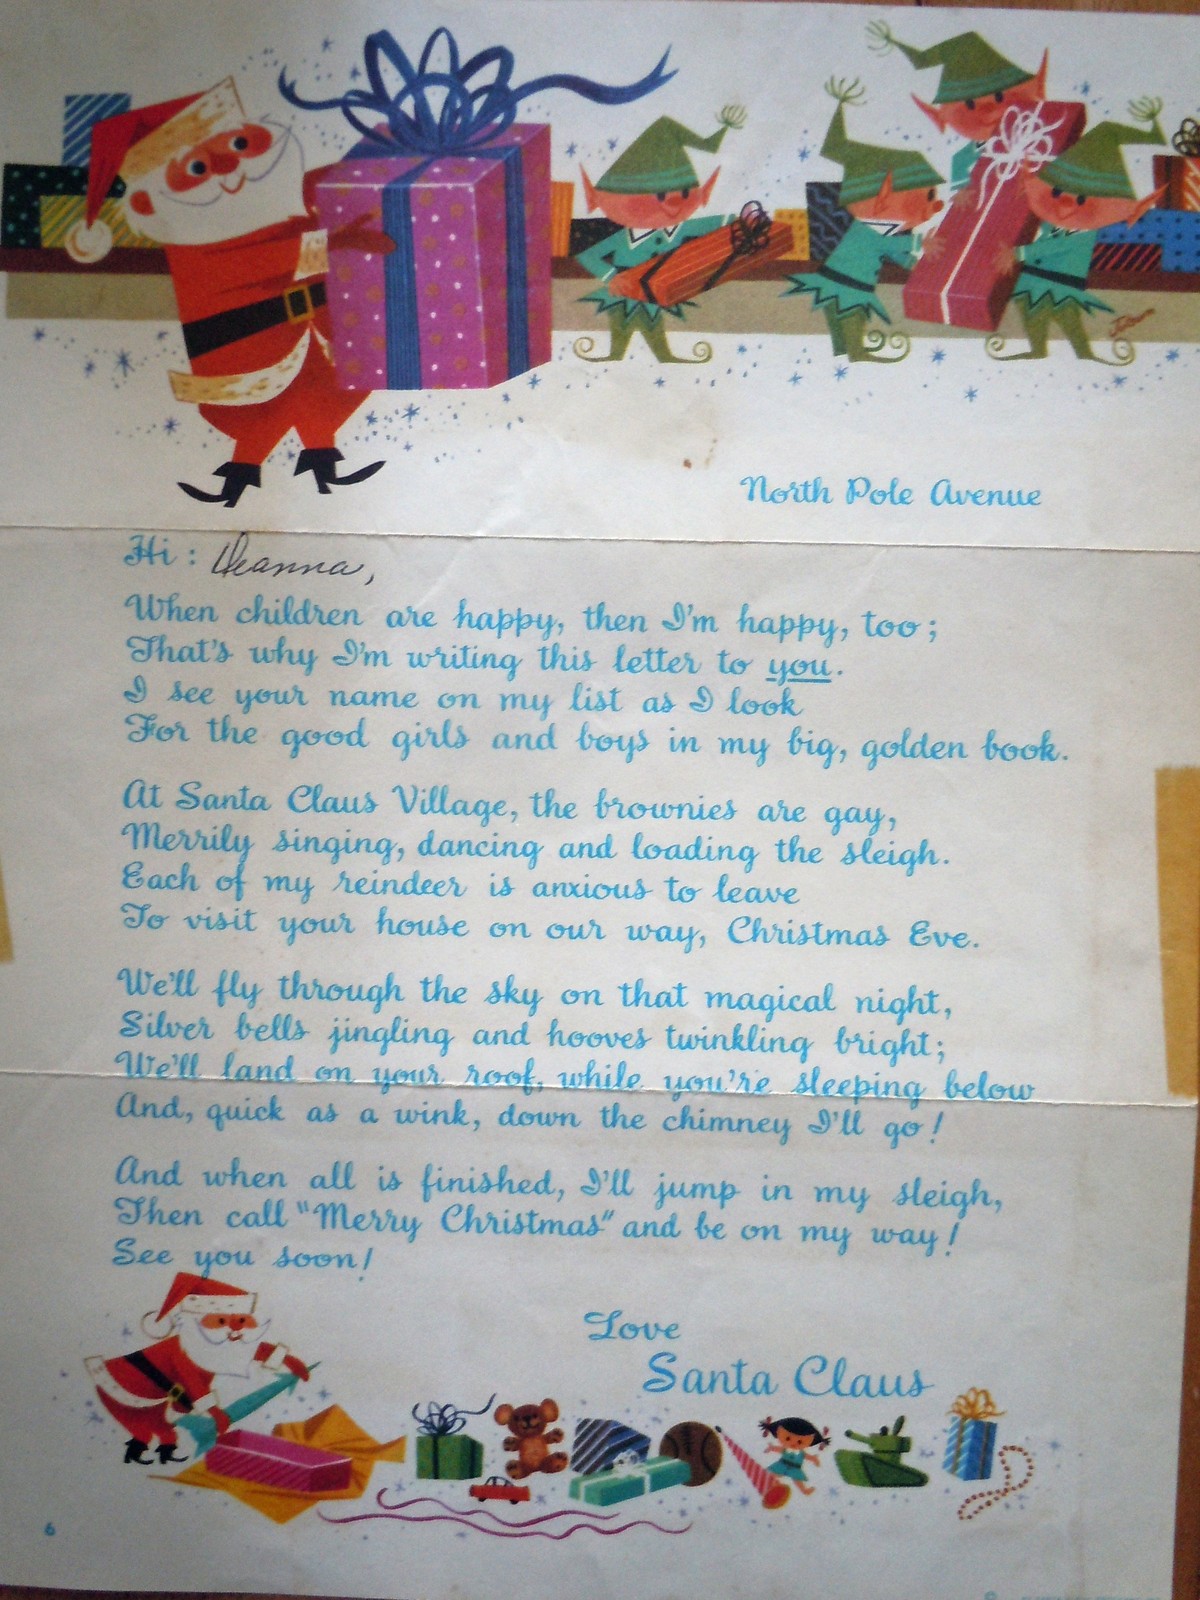 North Pole Avenue
Hi: Deanna,
When children are happy, then I'm happy, too;
That's why I'm writing this letter to you.
I see your name on my list as I look
For the good girls and boys in my big, golden book.
At Santa Claus Village, the brownies are gay,
Merrily singing, dancing and loading the sleigh.
Each of my reindeer is anxious to leave
To visit your house on our way, Christmas Eve.
We'll fly through the sky on that magical night,
Silver bells jingling and hooves twinkling bright;
We'll land on your roof, while you're sleeping below
And, quick as a wink, down the chimney I'll go!
And when all is finished, I'll jump in my sleigh,
Then call "Merry Christmas" and be on my way!
See you soon!
Love
Santa Claus
6